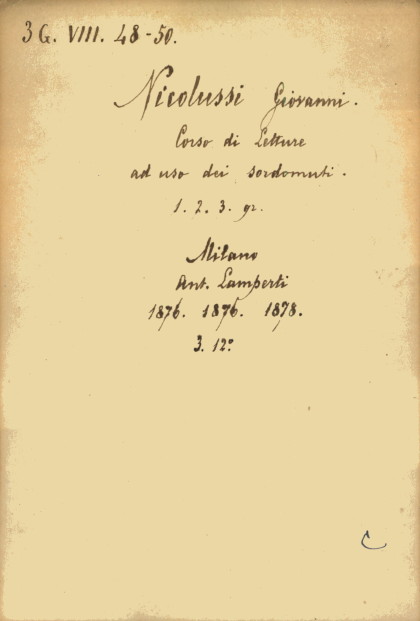 3 G. VIII. 48-50.
Nicolussi Giovanni.
Corso di Letture
ad uso dei sordomuti.
1. 2. 3. gr.
Milano
Ant. Lamperti
1876. 1876. 1878.
3. 12º
C